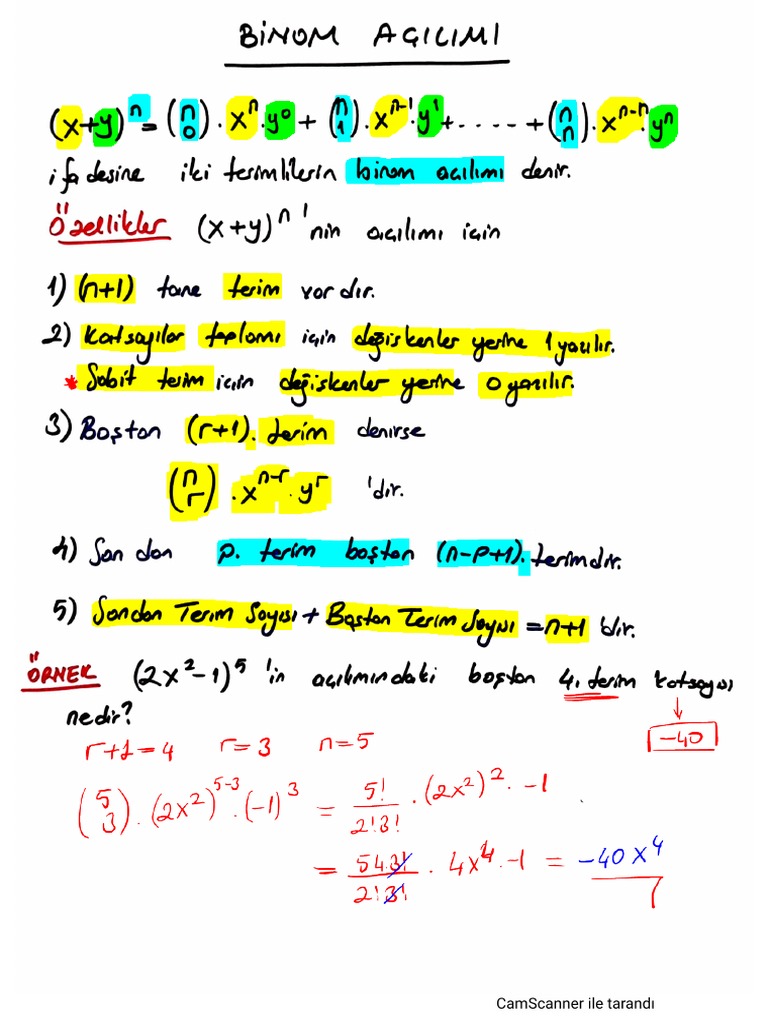 BİNOM AÇILIMI
(x+y)^n = (n 0) . x^n . y^0 + (n 1) . x^(n-1) . y^1 + . . . . . + (n n) . x^(n-n) . y^n
ifadesine iki terimlilerin binom açılımı denir.
Özellikler (x+y)^n 'nin açılımı için
1) (n+1) tane terim vardır.
2) Katsayılar toplamı için değişkenler yerine 1 yazılır.
* Sabit terim için değişkenler yerine 0 yazılır.
3) Baştan (r+1). terim denirse
(n r) . x^(n-r) . y^r 'dir.
4) Sondan p. terim baştan (n-p+1). terimdir.
5) Sondan Terim Sayısı + Baştan Terim Sayısı = n+1 'dir.
ÖRNEK (2x^2-1)^5 'in açılımındaki baştan 4. terim katsayısı
nedir?
-40
r+1=4 r=3 n=5
(5 3) . (2x^2)^(5-3) . (-1)^3 = 5!/2!3! . (2x^2)^2 . -1
= 5 4.3!/2!3! . 4x^4 . -1 = -40x^4
CamScanner ile tarandı